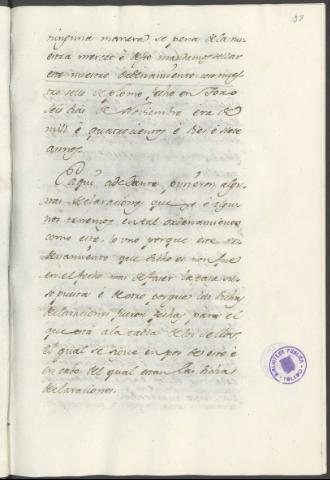 37
ninguna manera so pena de la nu
estra merced é desto mandamos sellar
este nuestro ordenamiento con nues
tro sello de plomo, fecho en Toro
seis dias de Noviembre era de
mill é quatrocientos é diez é siete
annos.
Daqui adelante, pusieron algu
nas declaraciones que yo é
nos tenemos en tal ordenamiento
como este, lo uno porque este or
denamiento que dicho es non fue
en el fecho mas de facer la tasa
puesta é de otro porque las dichas
declaraciones fueron fechas para el
que está a la tabla de los sellos,
el qual se pone en pos de este é
en cabo del qual eran las dichas
declaraciones.
BIBLIOTECA PUBLICA
TOLEDO